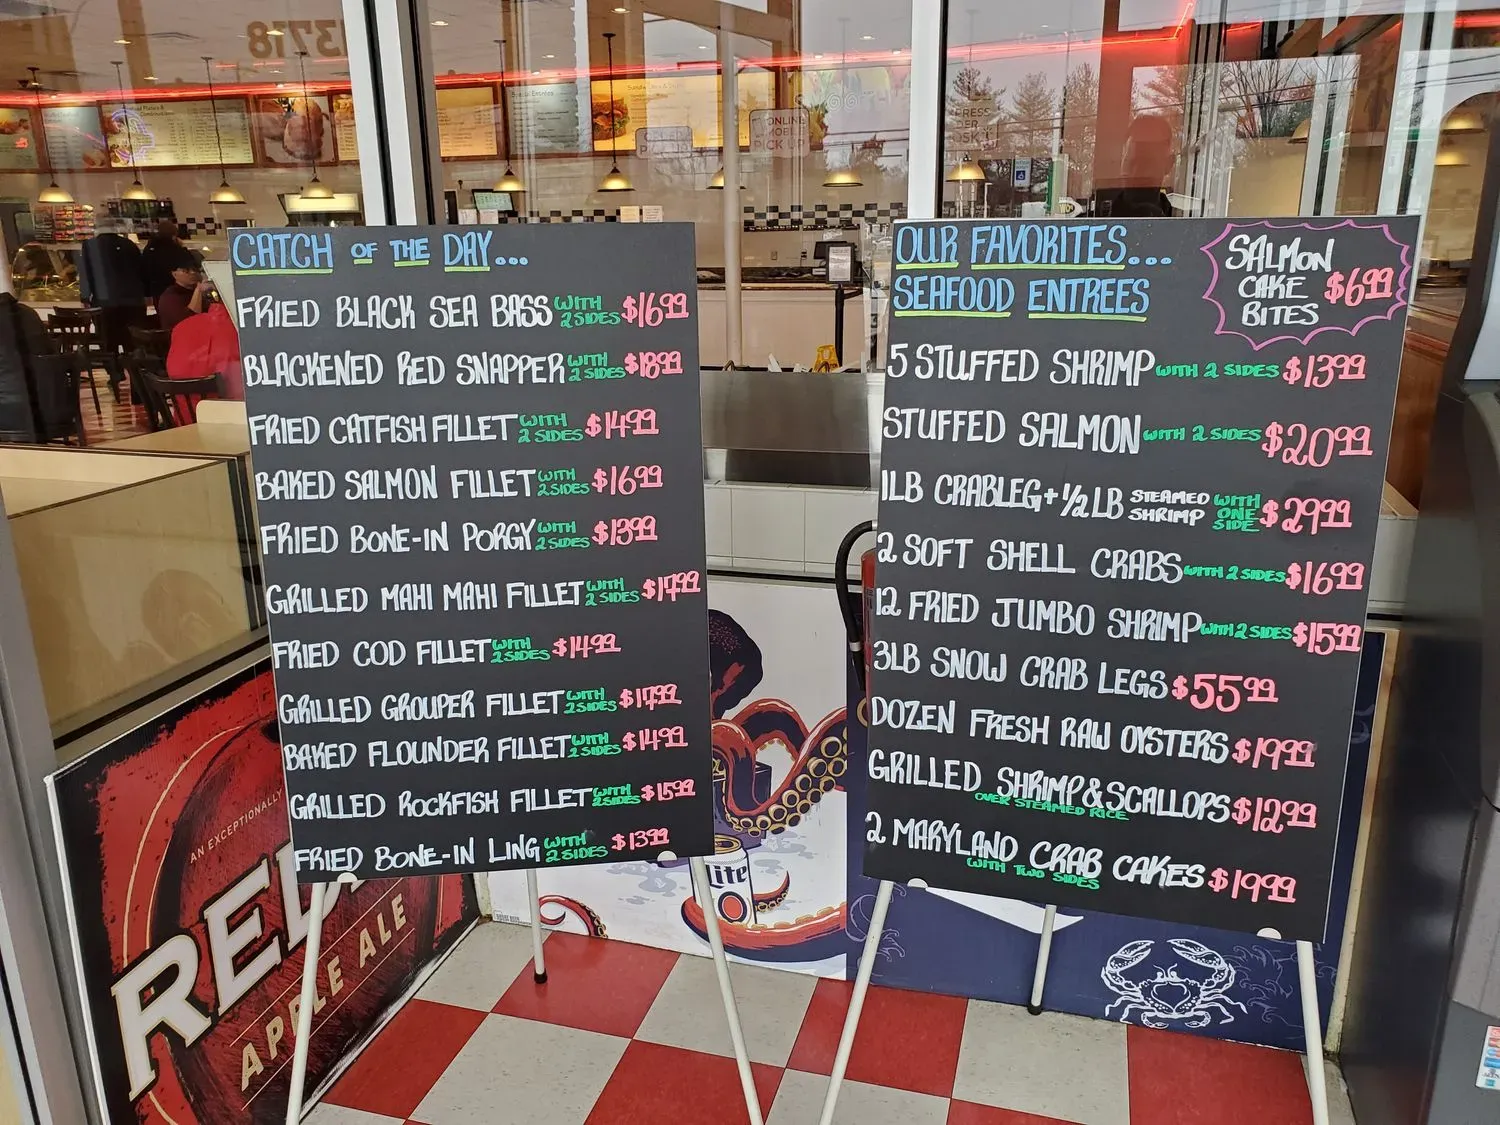 13718
COLE D
PICK UP
ONLINE
MOBILE
PICK UP
CATCH OF THE DAY...
FRIED BLACK SEA BASS WITH 2 SIDES $16.99
BLACKENED RED SNAPPER WITH 2 SIDES $18.99
FRIED CATFISH FILLET WITH 2 SIDES $14.99
BAKED SALMON FILLET WITH 2 SIDES $16.99
FRIED BONE-IN PORGY WITH 2 SIDES $13.99
GRILLED MAHI MAHI FILLET WITH 2 SIDES $17.99
FRIED COD FILLET WITH 2 SIDES $14.99
GRILLED GROUPER FILLET WITH 2 SIDES $17.99
BAKED FLOUNDER FILLET WITH 2 SIDES $14.99
GRILLED ROCKFISH FILLET WITH 2 SIDES $15.99
FRIED BONE-IN LING WITH 2 SIDES $13.99
OUR FAVORITES...
SEAFOOD ENTREES
SALMON
CAKE
BITES
$6.99
5 STUFFED SHRIMP WITH 2 SIDES $13.99
STUFFED SALMON WITH 2 SIDES $20.99
1LB CRABLEG + 1/2 LB STEAMED SHRIMP WITH ONE SIDE $29.99
2 SOFT SHELL CRABS WITH 2 SIDES $16.99
12 FRIED JUMBO SHRIMP WITH 2 SIDES $15.99
3LB SNOW CRAB LEGS $55.99
DOZEN FRESH RAW OYSTERS $19.99
GRILLED SHRIMP & SCALLOPS $12.99
OVER STEAMED RICE
2 MARYLAND CRAB CAKES $19.99
WITH TWO SIDES
AN EXCEPTIONALLY
RED
APPLE ALE
Lite